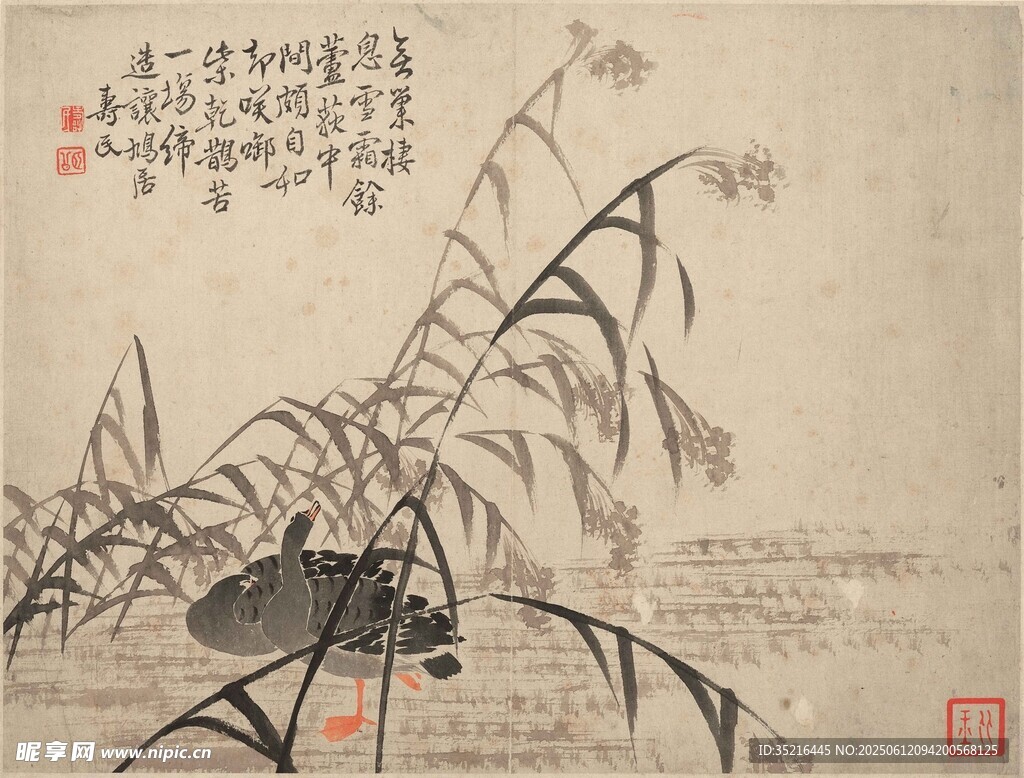 無巢棲
息雪霜餘
蘆荻中
間頗自和
却咲啣
柴乾鵲苦
一場締
造讓鳩居
壽民
昵享网 www.nipic.cn
ID:35216445 NO:20250612094200568125